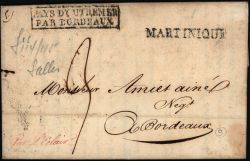 PAYS D'OUTREMER
PAR BORDEAUX
MARTINIQUE
Salles
Monsieur Amiet ainé
Negt
a Bordeaux